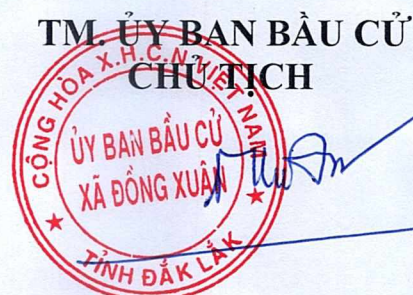 TM. ỦY BAN BẦU CỬ
CHỦ TỊCH
CỘNG HÒA X.H.C.N VIỆT NAM
ỦY BAN BẦU CỬ
XÃ ĐỒNG XUÂN
TỈNH ĐẮK LẮK